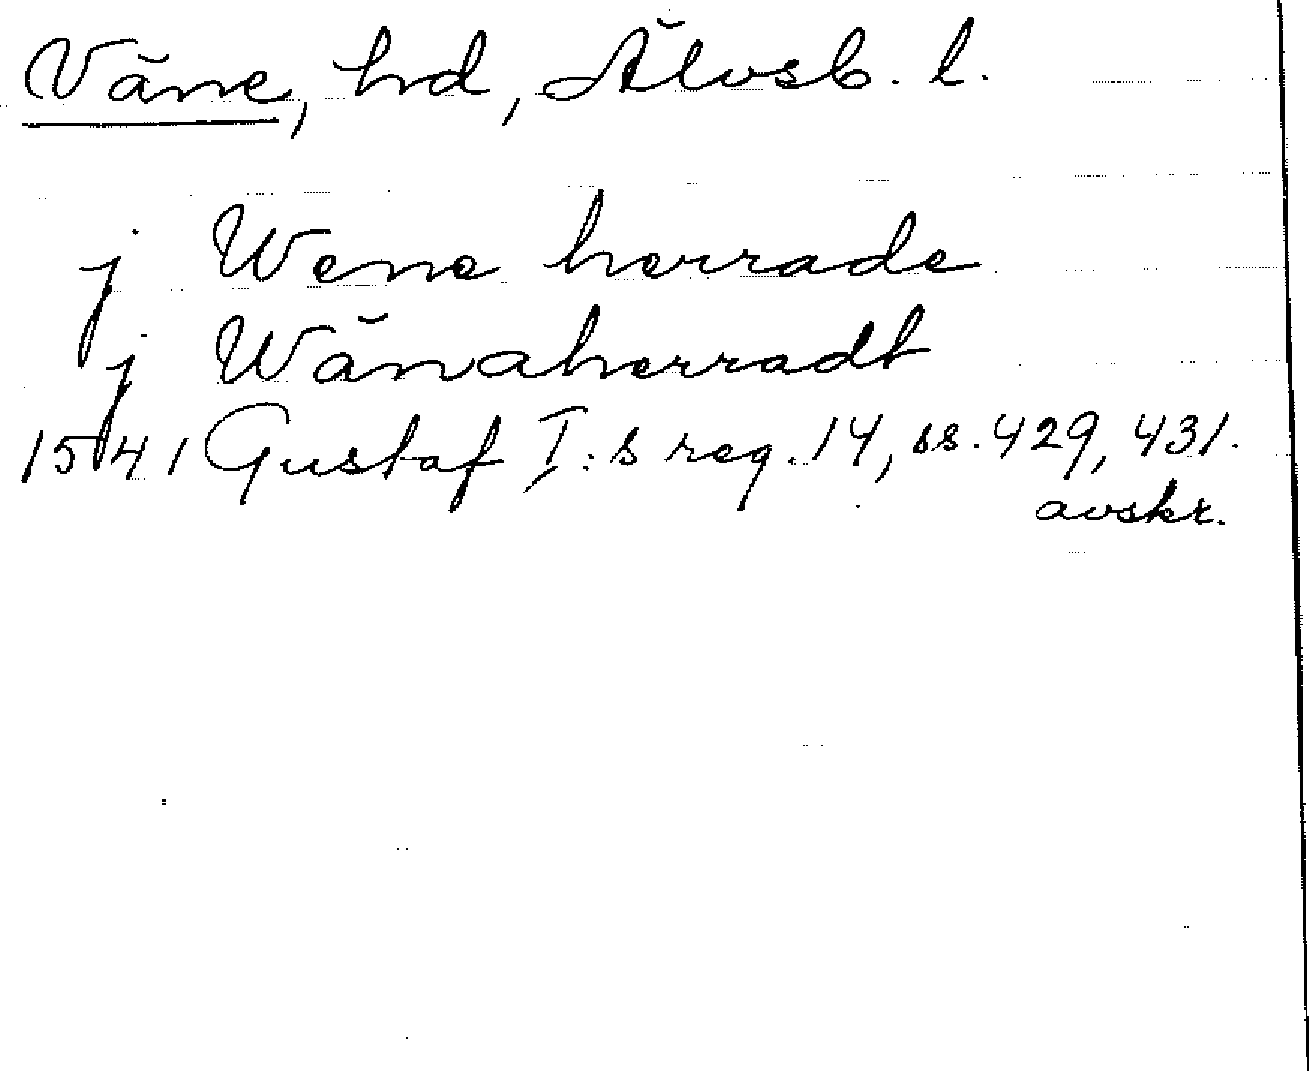 Väne, hd, Älvsb. l.
j Wene herrade
j Wänaherradt
1541 Gustaf I:s reg. 14, ss. 429, 431.
avskr.